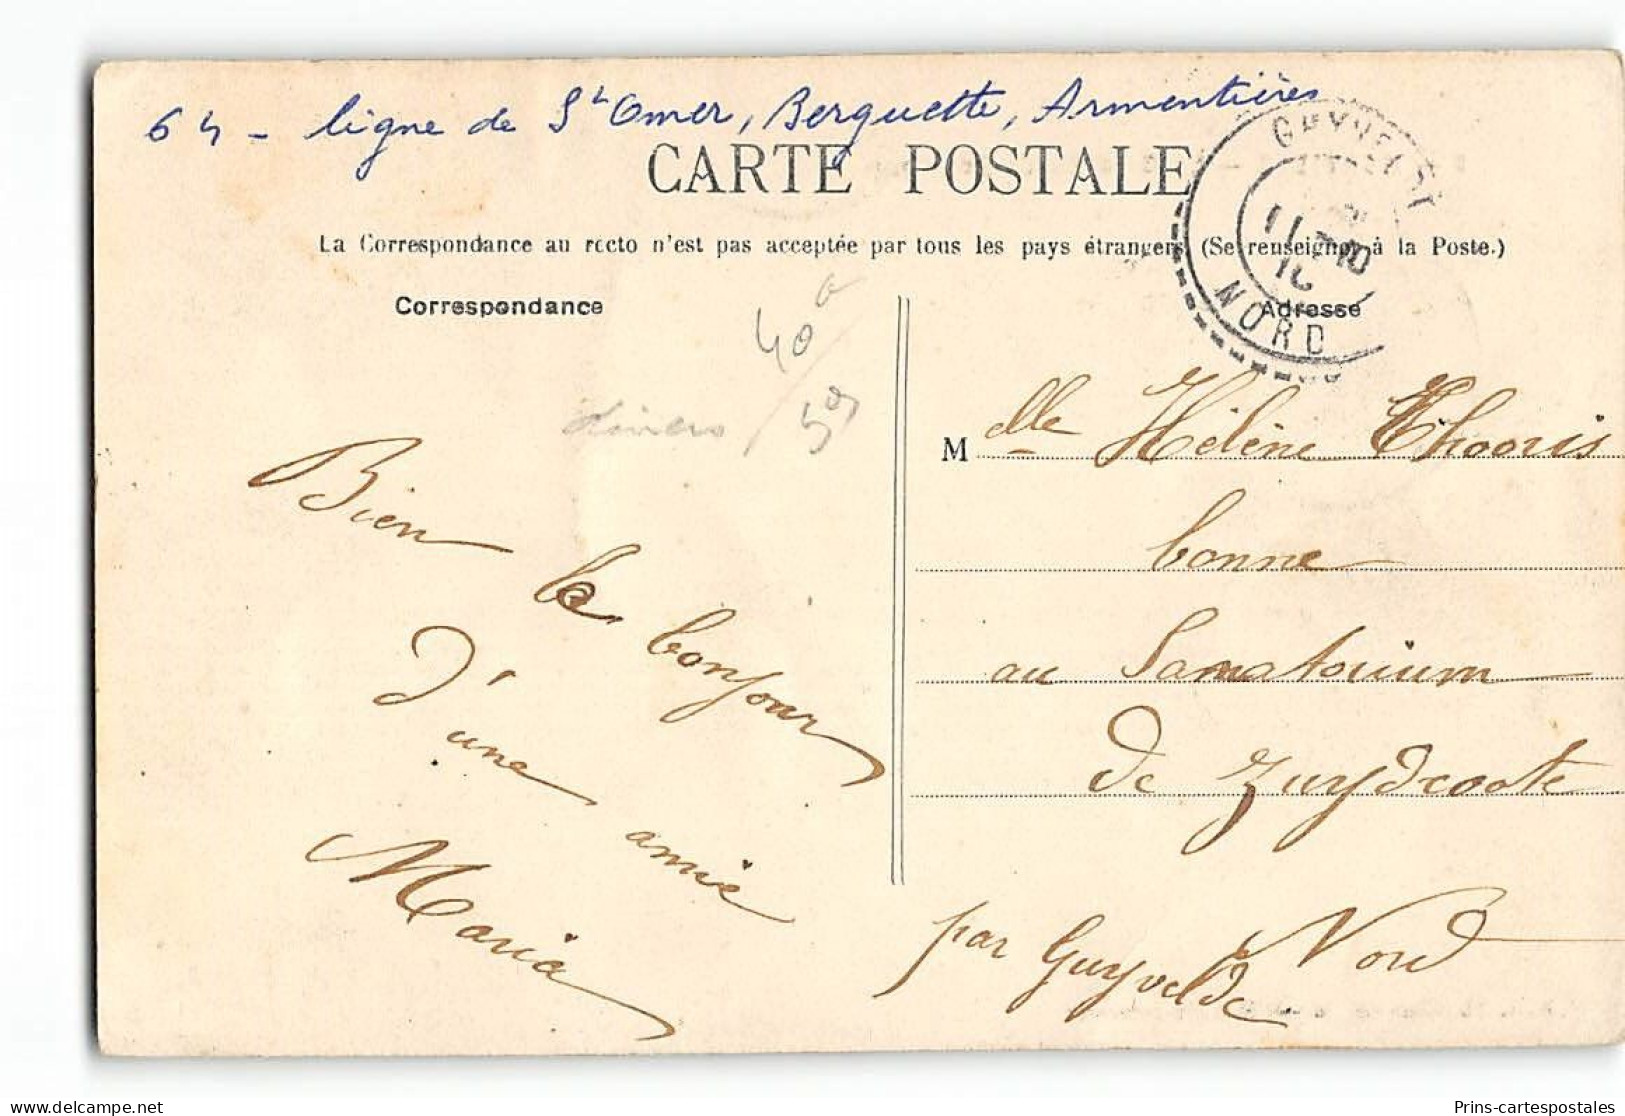 64 - ligne de St Omer, Berguette, Armentières
CARTE POSTALE
La Correspondance au recto n'est pas acceptée par tous les pays étrangers (Se renseigner à la Poste.)
Correspondance
Adresse
GHYVELDE
NORD
40
divers
Bien le bonjour
d'une amie
Maria
Mlle Hélène Thooris
bonne
au Sanatorium
de Zuydcoote
par Guyvelde Nord
Prins-cartespostales
delcampe.net